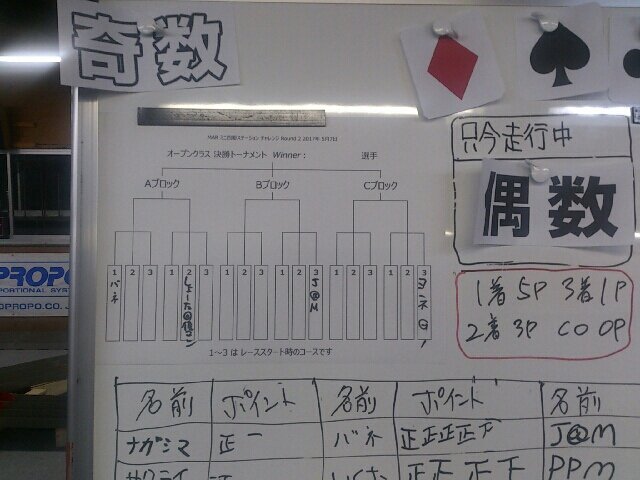 奇数
MAR ミニ四駆ステーション チャレンジ Round 2 2017年 5月7日
オープンクラス 決勝トーナメント Winner : 選手
Aブロック Bブロック Cブロック
1 2 3 1 2 3 1 2 3 1 2 3 1 2 3 1 2 3
バネ
J@M
1～3 は レーススタート時のコースです
只今走行中
偶数
1着 5P 3着 1P
2着 3P CO 0P
PROPO
PORTIONAL SYST
OPROPO.CO.J
名前 ポイント 名前 ポイント 名前
ナガシマ 正一 バネ 正正正正下 J@M
正正正下 PPM